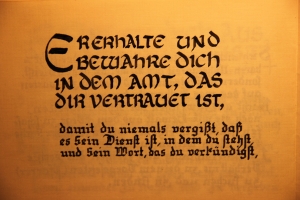 ER ERHALTE UND
BEWAHRE DICH
IN DEM AMT, DAS
DIR VERTRAUET IST,
damit du niemals vergißt, daß
es Sein Dienst ist, in dem du stehst,
und Sein Wort, das du verkündigst,